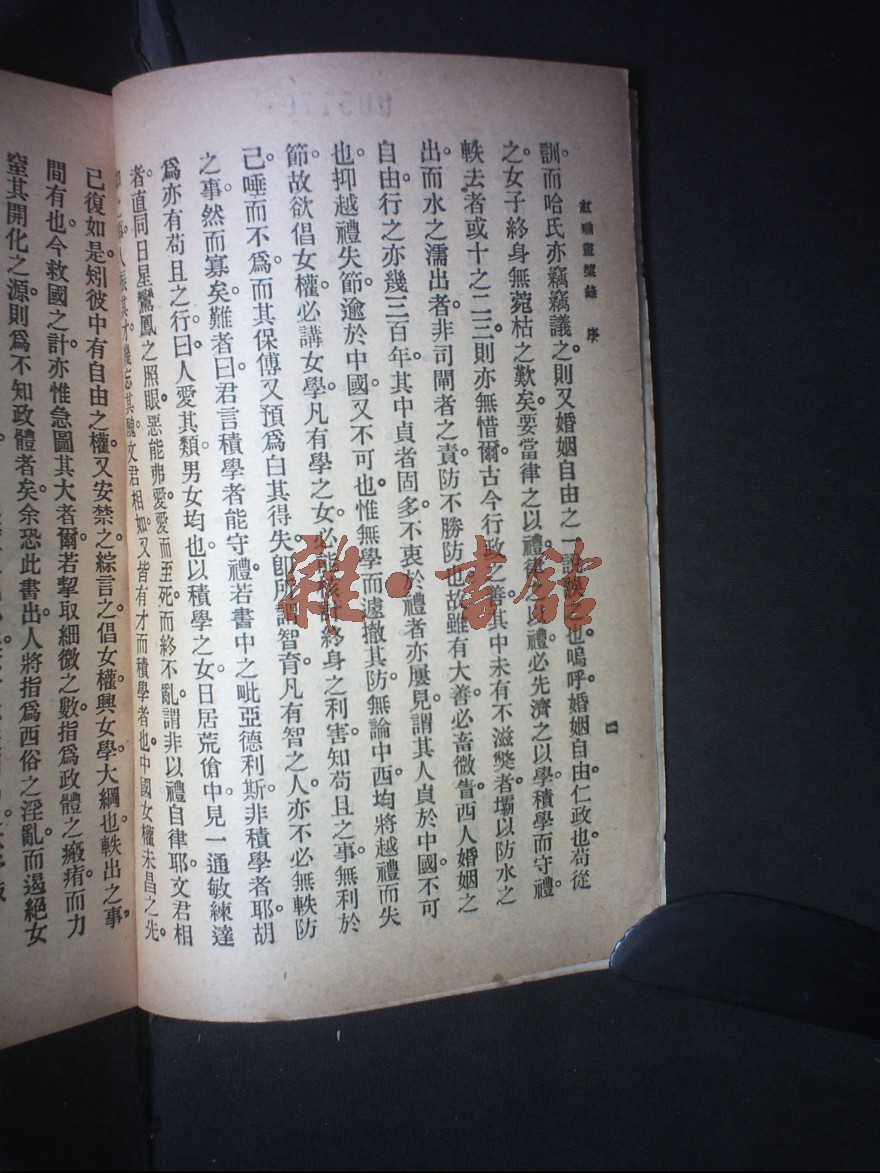 紅礁畫槳錄　序
二
訓而哈氏亦竊竊議之則又婚姻自由之一說誤之也。嗚呼婚姻自由。仁政也。苟從
之女子終身無菀枯之歎矣。要當律之以禮。律之以禮必先濟之以學積學而守禮。
軼去者或十之二三則亦無惜爾。古今行政之善其中未有不滋獘者。壩以防水之
出而水之濡出者。非司閘者之責。防不勝防也。故雖有大善必畜微眚。西人婚姻之
自由。行之亦幾三百年。其中貞者固多。不衷於禮者亦屢見。謂其人貞於中國。不可
也。抑越禮失節。逾於中國。又不可也。惟無學而遽撤其防。無論中西均將越禮而失
節。故欲倡女權必講女學。凡有學之女。必能核計終身之利害。知苟且之事。無利於
己。唾而不爲。而其保傅又預爲白其得失。卽所謂智育。凡有智之人。亦不必無軼防
之事。然而寡矣。難者曰。君言積學者能守禮。若書中之毗亞德利斯。非積學者耶。胡
爲亦有苟且之行。曰。人愛其類。男女均也。以積學之女。日居荒傖中。見一通敏練達
者。直同日星鸞鳳之照眼。惡能弗愛。愛而至死。而終不亂。謂非以禮自律耶。文君相
如之事。人振其才。幾忘其醜。文君相如。又皆有才而積學者也。中國女權未昌之先。
已復如是。矧彼中有自由之權。又安禁之。綜言之。倡女權。興女學。大綱也。軼出之事。
間有也。今救國之計。亦惟急圖其大者爾。若挈取細微之數。指爲政體之瘢痏。而力
窒其開化之源。則爲不知政體者矣。余恐此書出。人將指爲西俗之淫亂。而遏絕女
雜·書館